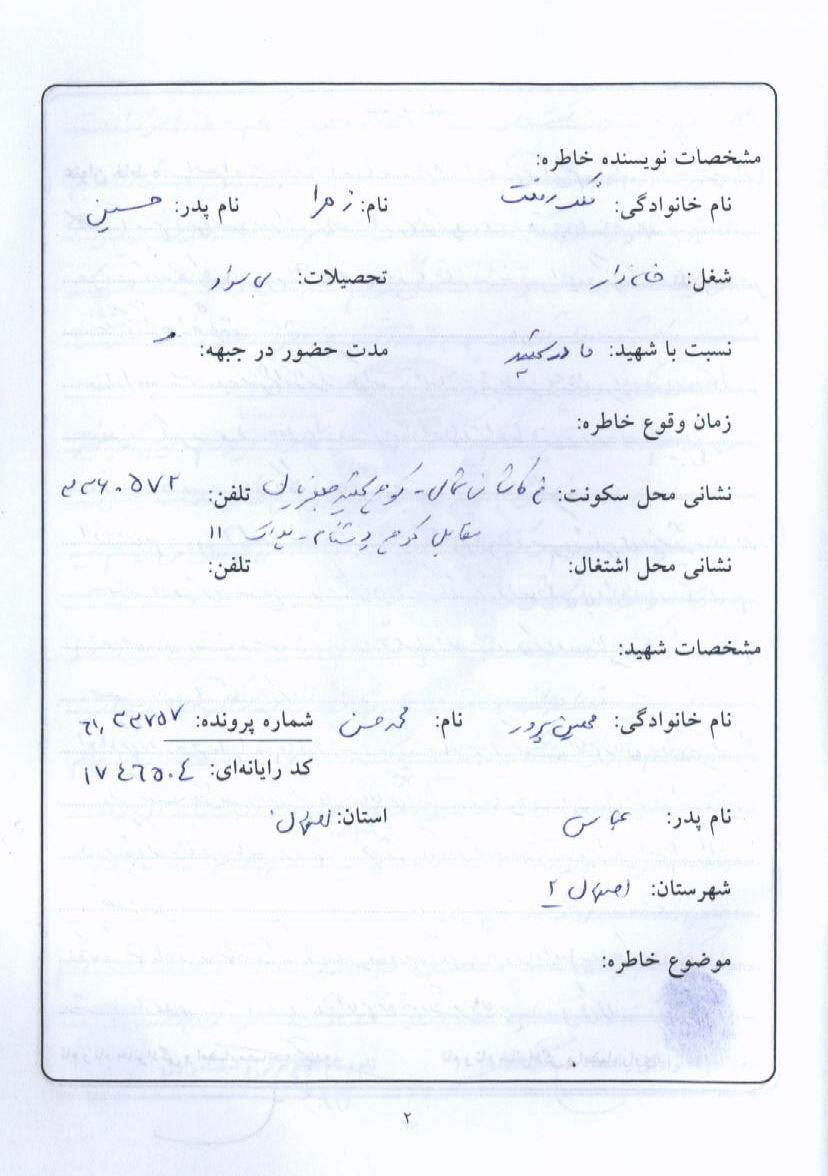 مشخصات نویسنده خاطره:
نام خانوادگی: نام: زهرا نام پدر: حسین
شغل: خانه دار تحصیلات: بی سواد
نسبت با شهید: مادر شهید مدت حضور در جبهه:
زمان وقوع خاطره:
نشانی محل سکونت: خ کاشانی شمالی - کوچه شهید تلفن: ۳۳۶۰۵۷۲
مقابل کوچه - پلاک ۱۱
نشانی محل اشتغال: تلفن:
مشخصات شهید:
نام خانوادگی: معین پرور نام: محمدحسن شماره پرونده: ۶۱,۳۳۷۵۷
کد رایانه‌ای: ۱۷۴۶۵۰۴
نام پدر: عباس استان: اصفهان
شهرستان: اصفهان ۲
موضوع خاطره:
۲